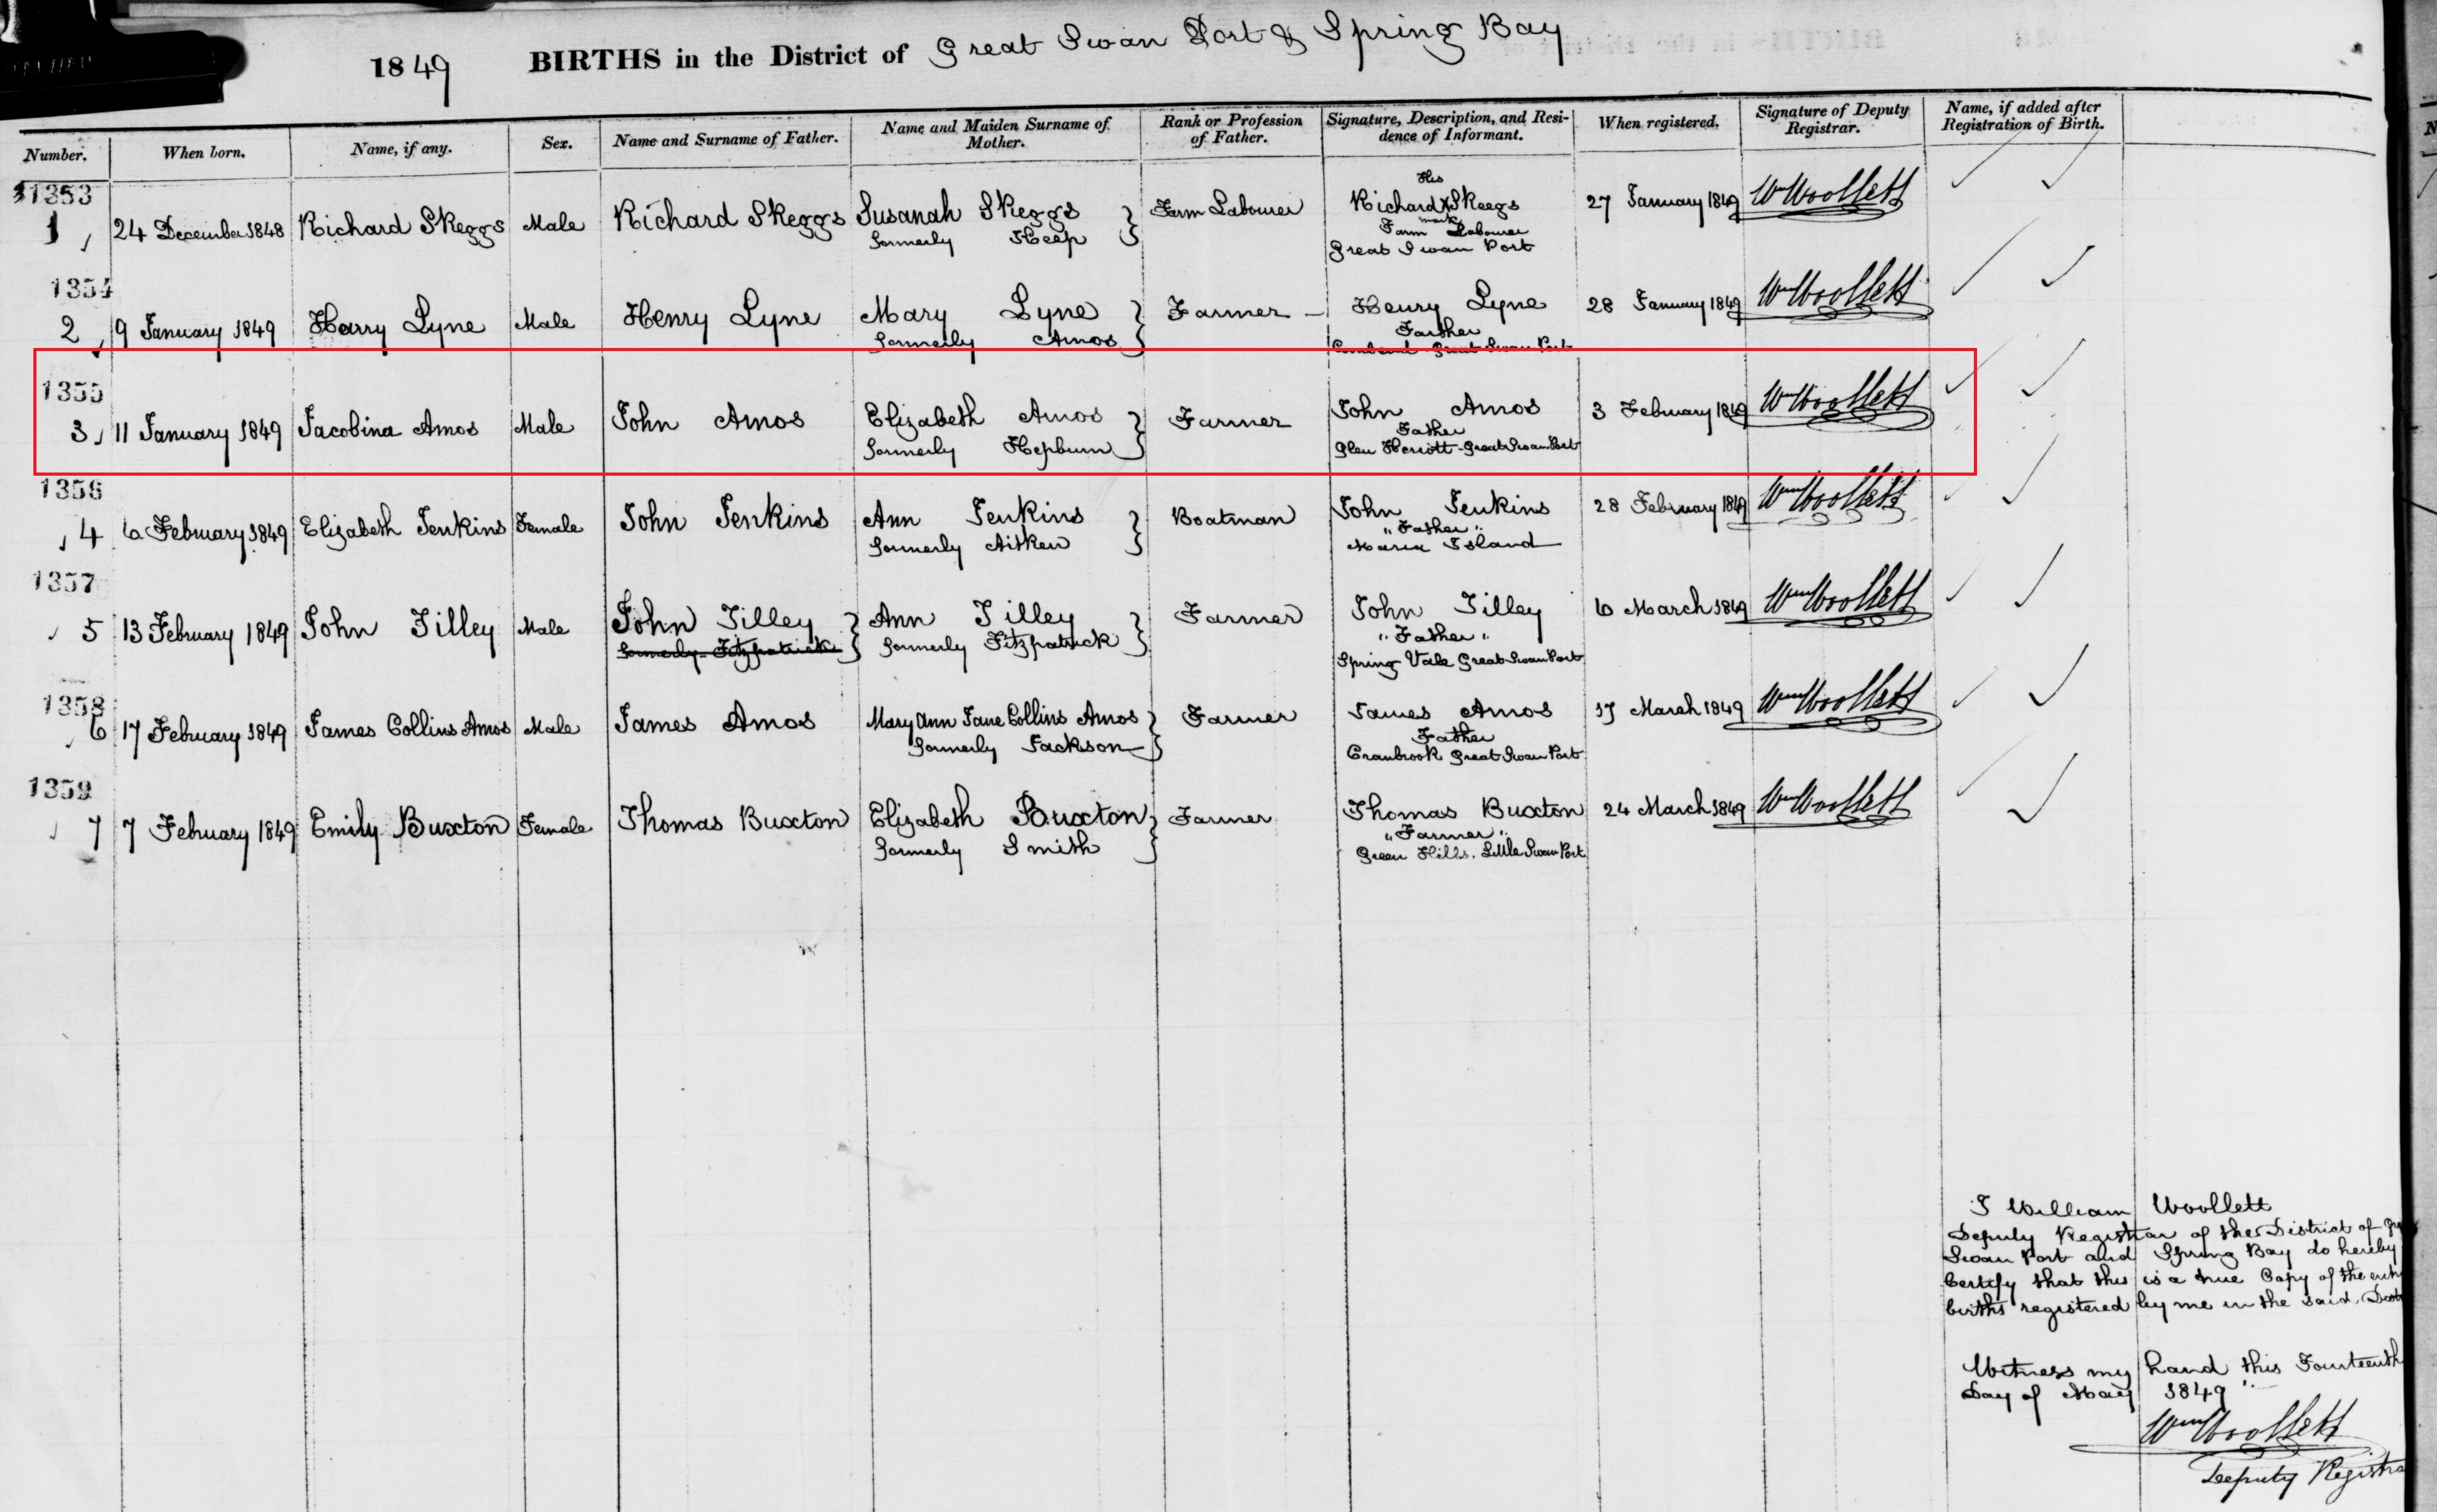 1849 BIRTHS in the District of Great Swan Port & Spring Bay
Number. When born. Name, if any. Sex. Name and Surname of Father. Name and Maiden Surname of Mother. Rank or Profession of Father. Signature, Description, and Residence of Informant. When registered. Signature of Deputy Registrar. Name, if added after Registration of Birth.
1353
1 24 December 1848 Richard Skeggs Male Richard Skeggs Susanah Skeggs Farm Labourer Richard X Skeegs 27 January 1849 Wm Woollett
formerly Heep His mark
Farm Labourer
Great Swan Port
1354
2 9 January 1849 Harry Lyne Male Henry Lyne Mary Lyne Farmer Henry Lyne 28 January 1849 Wm Woollett
formerly Amos Farther
Great Swan Port
1355
3 11 January 1849 Jacobina Amos Male John Amos Elizabeth Amos Farmer John Amos 3 February 1849 Wm Woollett
formerly Hepburn Father
Glen Herriott - Great Swan Port
1356
4 6 February 1849 Elizabeth Jenkins Female John Jenkins Ann Jenkins Boatman John Jenkins 28 February 1849 Wm Woollett
formerly Aitken "Father"
Maria Island
1357
5 13 February 1849 John Tilley Male John Tilley Ann Tilley Farmer John Tilley 6 March 1849 Wm Woollett
formerly Fitzpatrick formerly Fitzpatrick "Father"
Spring Vale Great Swan Port
1358
6 17 February 1849 James Collins Amos Male James Amos Mary Ann Jane Collins Amos Farmer James Amos 17 March 1849 Wm Woollett
formerly Jackson Father
Cranbrook Great Swan Port
1359
7 7 February 1849 Emily Buxton Female Thomas Buxton Elizabeth Buxton Farmer Thomas Buxton 24 March 1849 Wm Woollett
formerly Smith "Farmer"
Green Hills. Little Swan Port
I William Woollett
Deputy Registrar of the District of
Swan Port and Spring Bay do hereby
Certify that this is a true Copy of the
births registered by me in the said
Witness my hand this Fourteenth
Day of May 1849
Wm Woollett
Deputy Registra